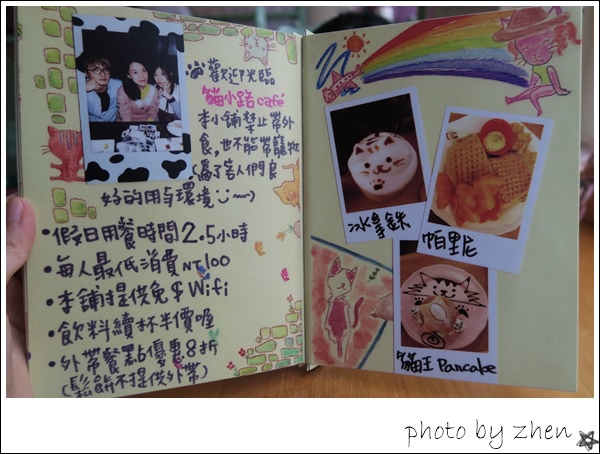 歡迎光臨
貓小路café
本小舖禁止帶外
食,也不能帶寵物
(為了客人們良
好的用餐環境
•假日用餐時間2.5小時
•每人最低消費NT100
•本舖提供免$Wifi
•飲料續杯半價喔
•外帶餐點優惠8折
(鬆餅不提供外帶)
冰拿鐵
帕里尼
貓王Pancake
photo by zhen